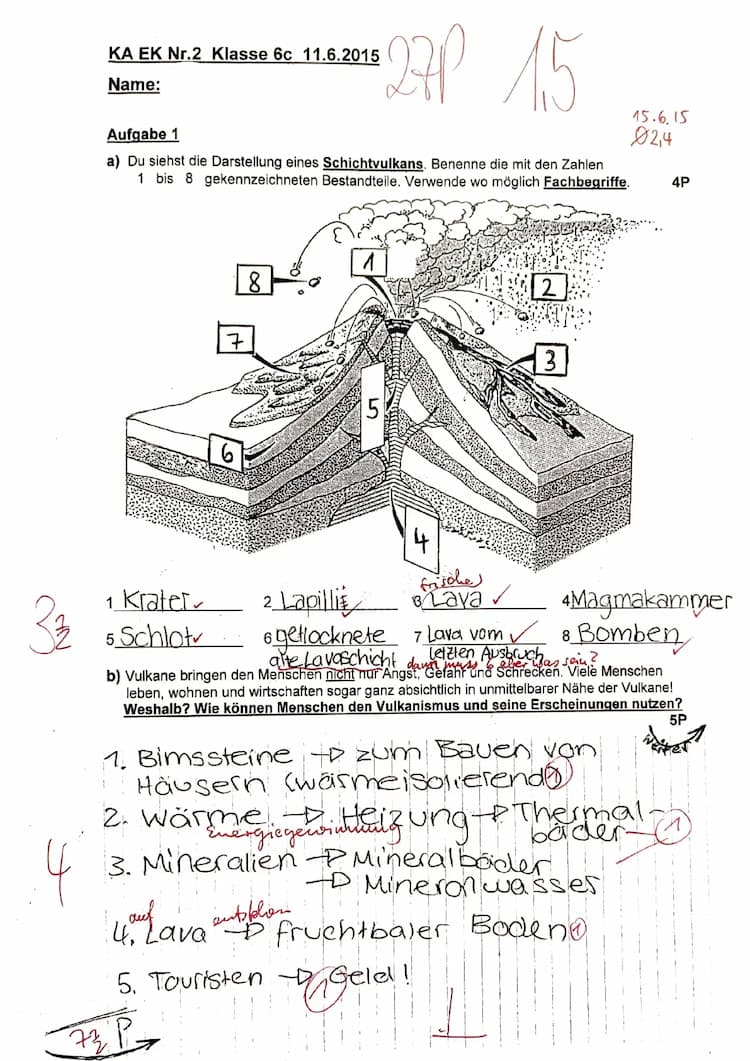 KA EK Nr.2 Klasse 6c 11.6.2015
27P 1,5
Name:
15.6.15
Ø2,4
Aufgabe 1
a) Du siehst die Darstellung eines Schichtvulkans. Benenne die mit den Zahlen
1 bis 8 gekennzeichneten Bestandteile. Verwende wo möglich Fachbegriffe. 4P
1
8
2
7
3
5
6
4
frische
1 Krater 2 Lapillis 3 Lava 4 Magmakammer
3½
5 Schlot 6 getrocknete 7 Lava vom 8 Bomben
alte Lavaschicht letzten Ausbruch
dann muss 6 aber was sein?
b) Vulkane bringen den Menschen nicht nur Angst, Gefahr und Schrecken. Viele Menschen
leben, wohnen und wirtschaften sogar ganz absichtlich in unmittelbarer Nähe der Vulkane!
Weshalb? Wie können Menschen den Vulkanismus und seine Erscheinungen nutzen?
5P
weiter
1. Bimssteine → zum Bauen von
Häusern (wärmeisolierend) 1
2. Wärme → Heizung → Thermal-
Energiegewinnung bäder 1
4
3. Mineralien → Mineralbäder
→ Mineralwasser
auf entsteht
4. Lava → fruchtbarer Boden 1
5. Touristen → Geld! 1
7½ P